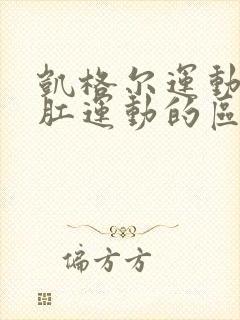 凱格尔運動
肛運動的區
偏方方